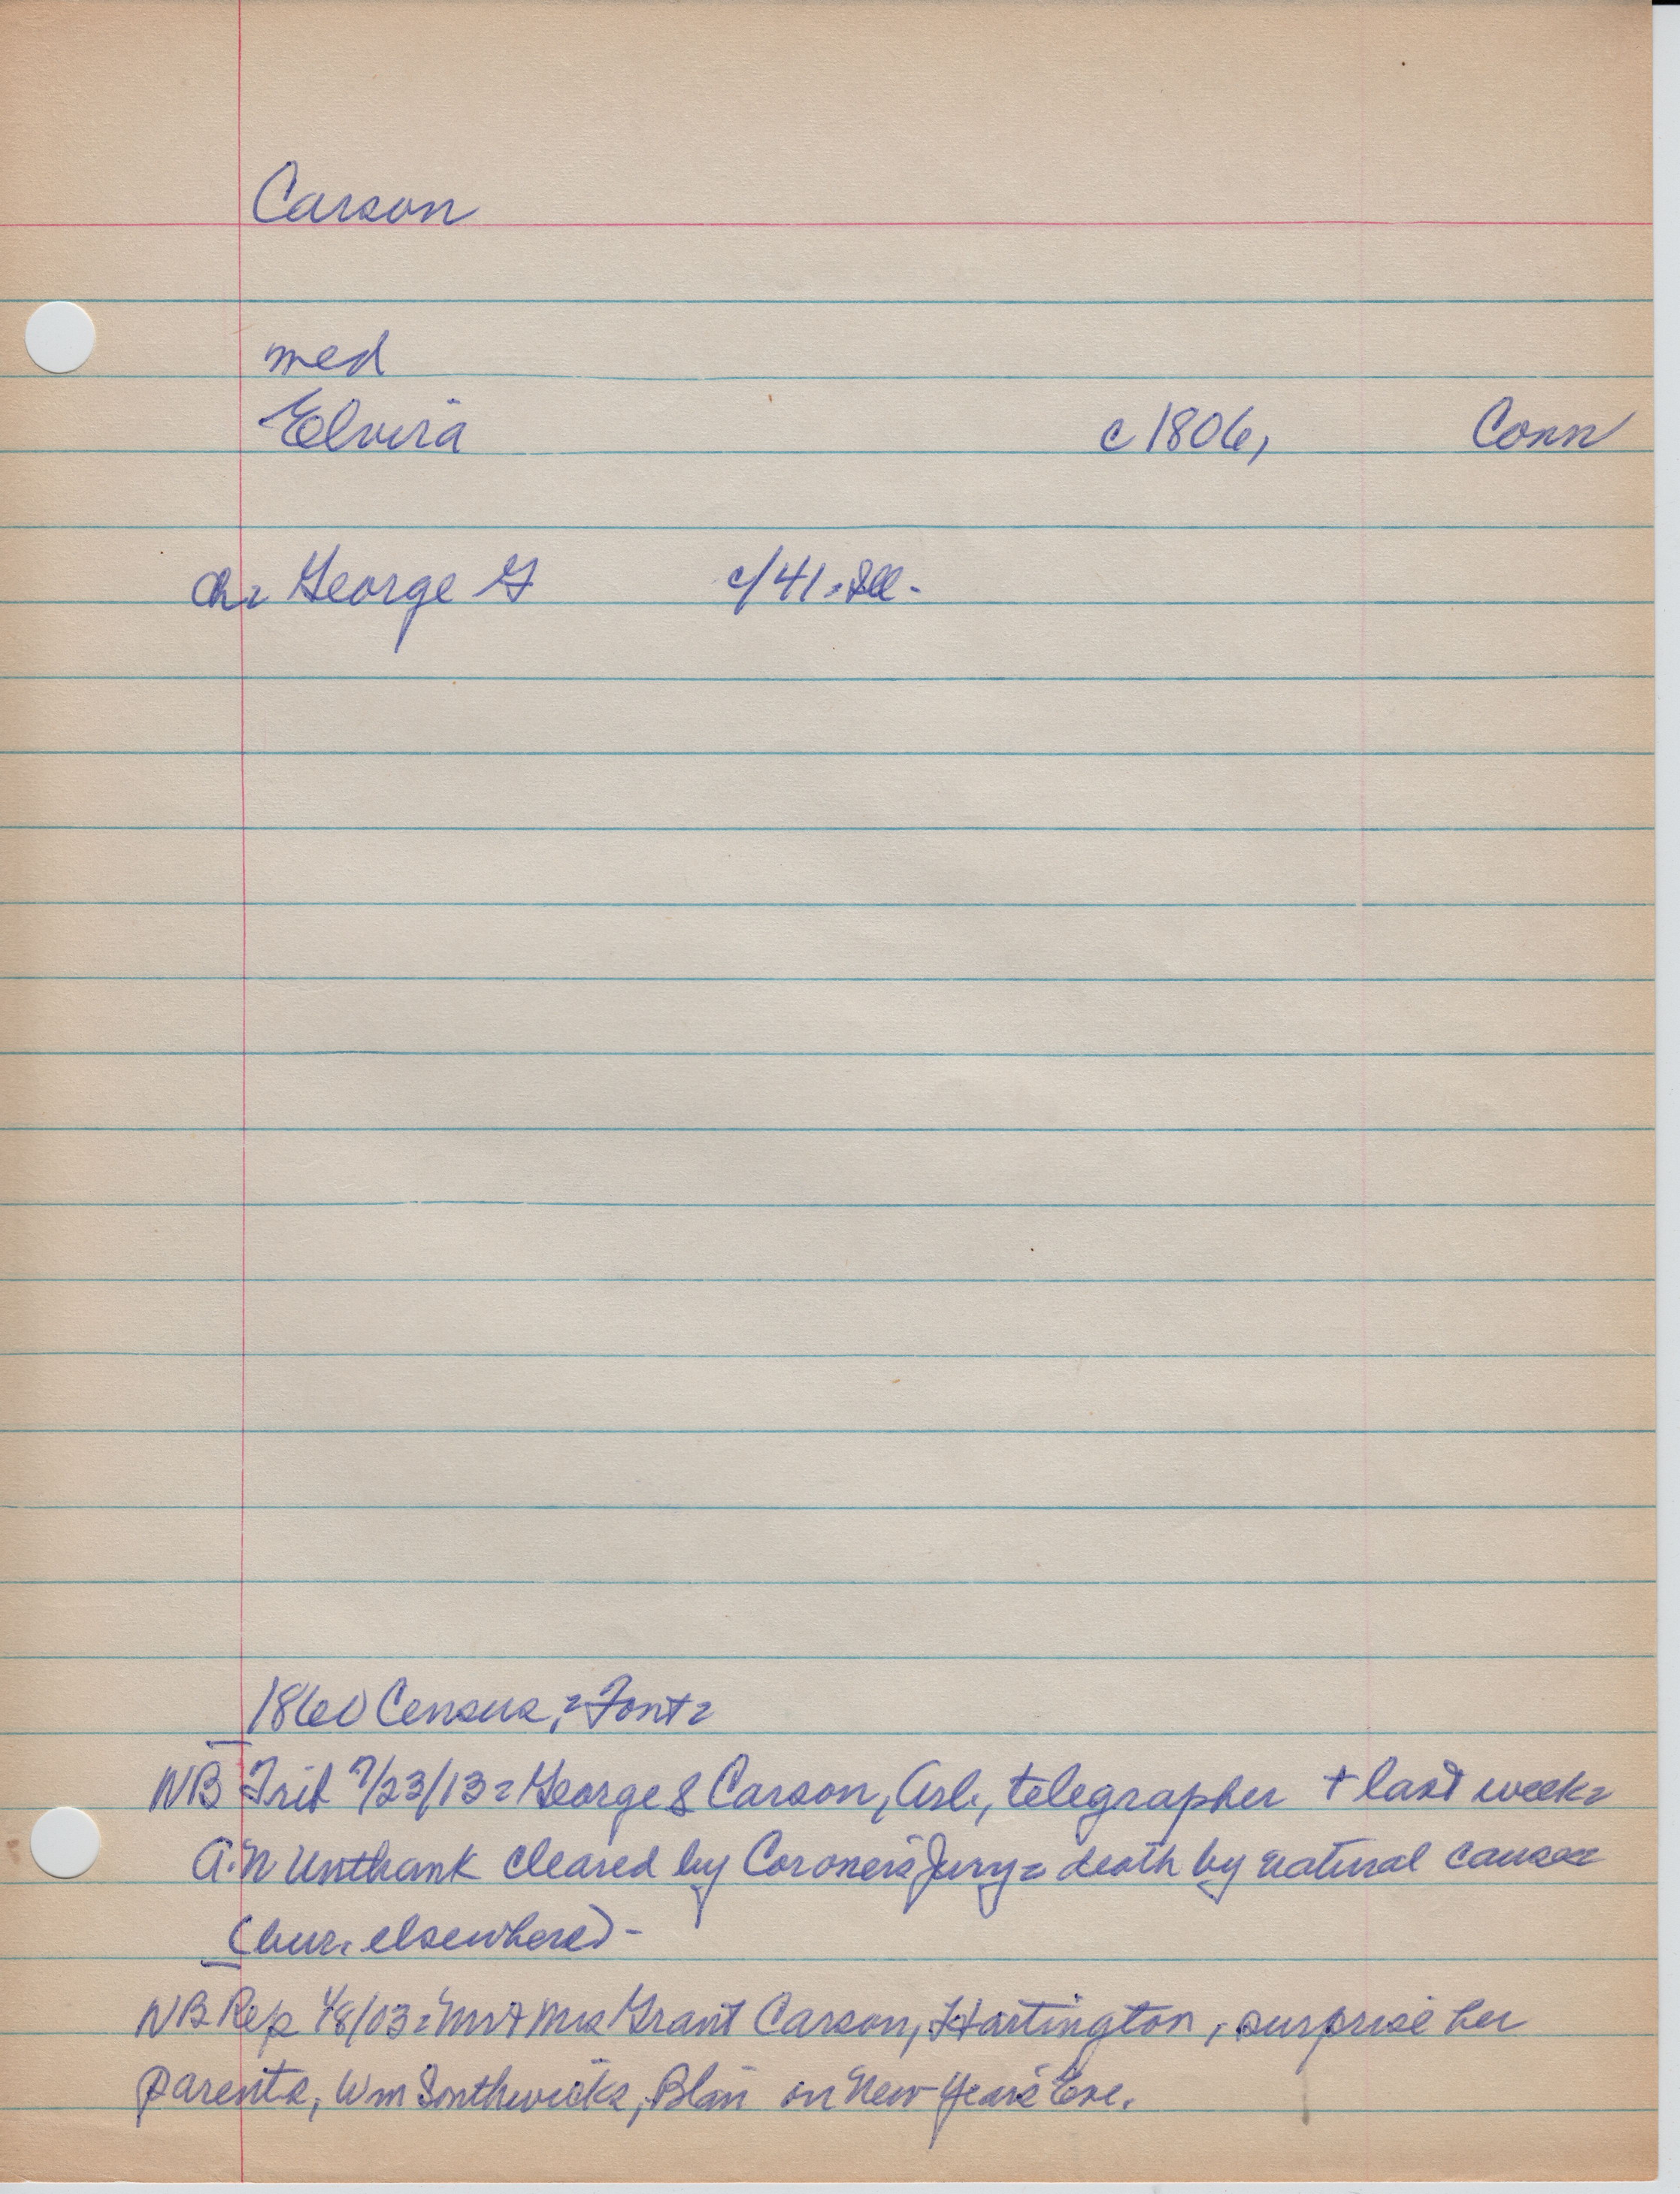 Carson
med
Elvira c 1806, Conn
ch= George G c/41. Ill-
1860 Census,= Font=
NB Trib 7/23/13= George S Carson, Arl., telegrapher + last week=
A.N Unthank cleared by Coroner's Jury= death by natural causes=
(bur. elsewhere)-
NB Rep 1/8/03= Mr + Mrs Grant Carson, Hartington, surprise her
parents, Wm Southwicks, Blair on New Year's Eve.